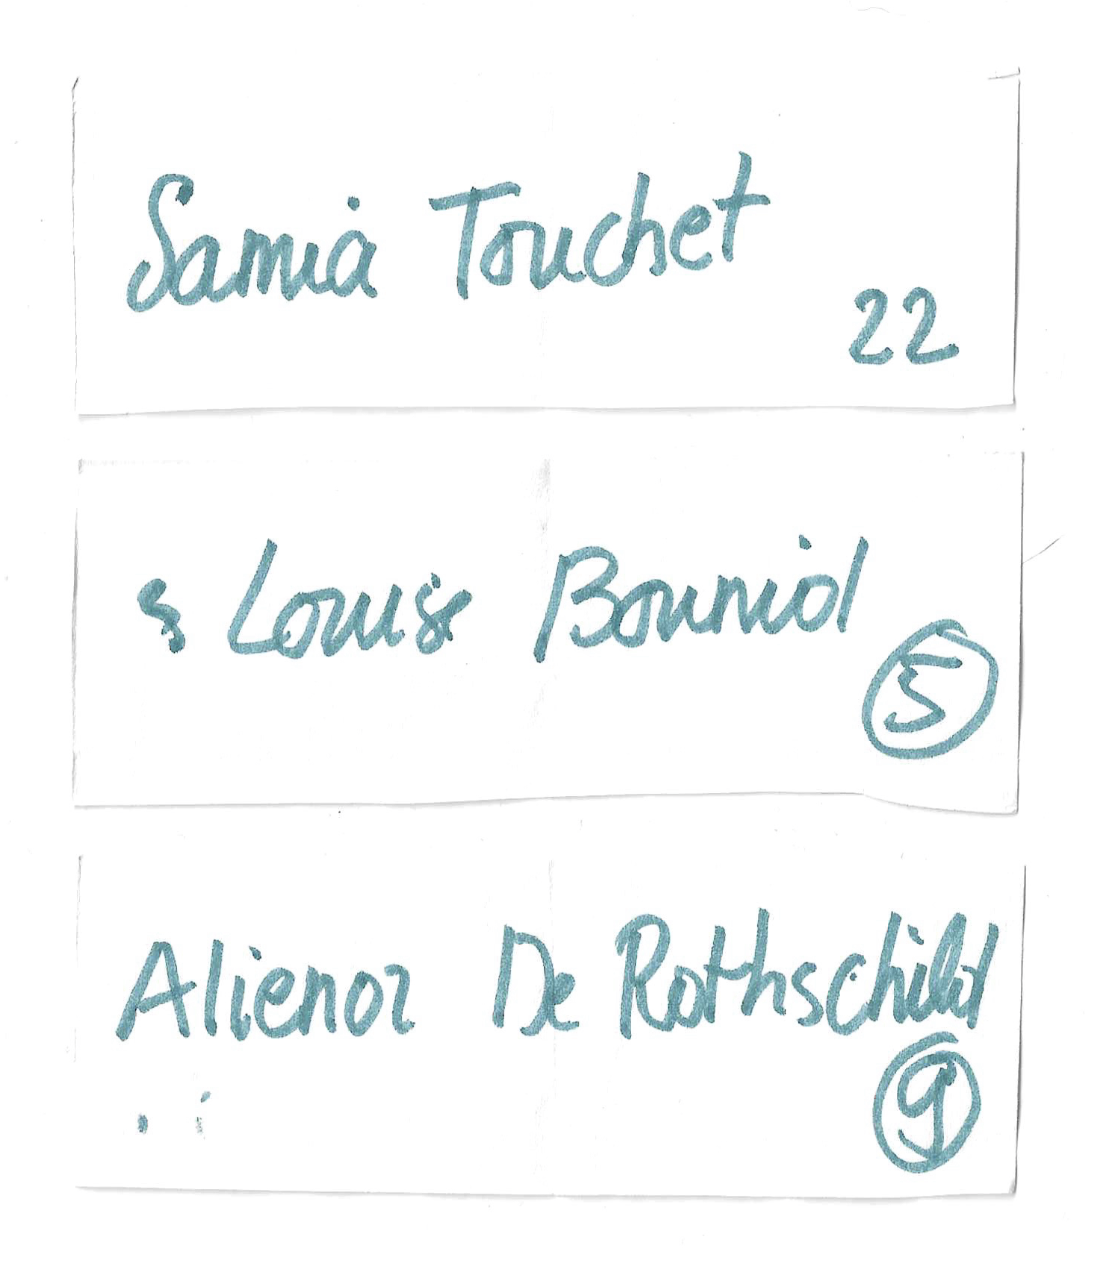 Samia Touchet
22
Louise Bouniol
5
Alienor De Rothschild
9